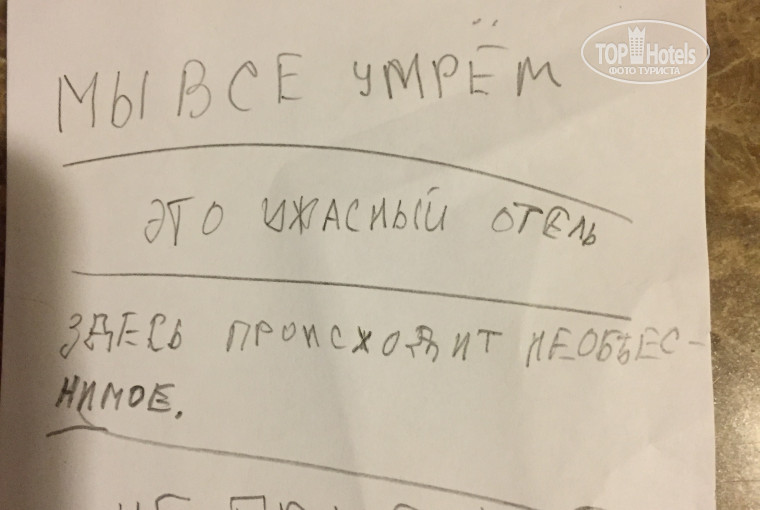 TOP Hotels
ФОТО ТУРИСТА
МЫ ВСЕ УМРЁМ
ЭТО УЖАСНЫЙ ОТЕЛЬ
ЗДЕСЬ ПРОИСХОДИТ НЕОБЪЕС-
НИМОЕ.